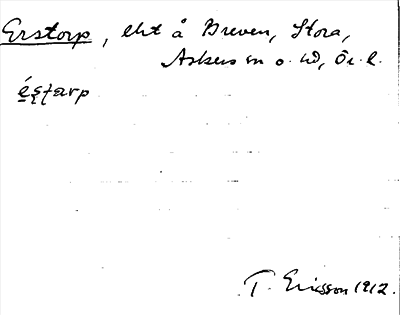 Erstorp, lht å Breven, Stora,
Askers sn o. hd, Ör. l.
T. Ericsson 1912.